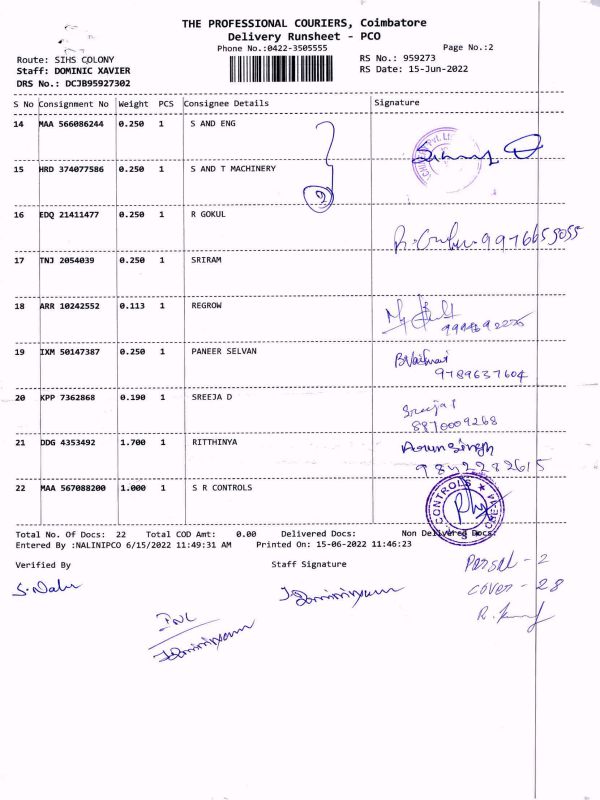 THE PROFESSIONAL COURIERS, Coimbatore
Delivery Runsheet - PCO
Phone No.:0422-3505555
Page No.:2
Route: SIHS COLONY
RS No.: 959273
Staff: DOMINIC XAVIER
RS Date: 15-Jun-2022
DRS No.: DCJB95927302
S No Consignment No Weight PCS Consignee Details Signature
14 MAA 566086244 0.250 1 S AND ENG
15 HRD 374077586 0.250 1 S AND T MACHINERY
2
16 EDQ 21411477 0.250 1 R GOKUL
17 TNJ 2054039 0.250 1 SRIRAM
18 ARR 10242552 0.113 1 REGROW
19 IXM 50147387 0.250 1 PANEER SELVAN
9789637604
20 KPP 7362868 0.190 1 SREEJA D
Sreeja
8870009268
21 DDG 4353492 1.700 1 RITTHINYA
Arun Singh
22 MAA 567088200 1.000 1 S R CONTROLS
CONTROLS
Total No. Of Docs: 22 Total COD Amt: 0.00 Delivered Docs: Non Delivered Docs:
Entered By :NALINIPCO 6/15/2022 11:49:31 AM Printed On: 15-06-2022 11:46:23
Verified By Staff Signature
Parsal - 2
cover - 28